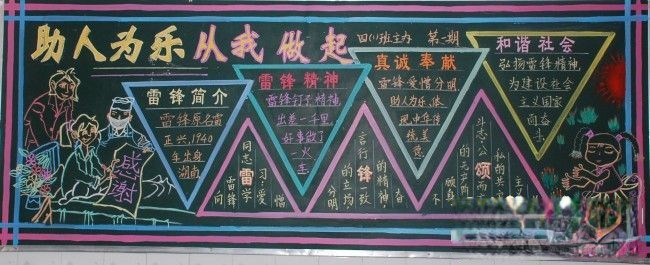 助人为乐从我做起
四(1)班主办 第一期
雷锋简介
雷锋原名雷
正兴,1940
年出身
湖南
雷锋精神
雷锋行了精神
出差一千里
好事做了
一火
车
真诚奉献
雷锋爱憎分明
助人为乐、体
现中华传
统美
德
和谐社会
弘扬雷锋精神
为建设社会
主义国家
而奋
斗
感谢
向
雷锋
同志
雷
学
习:爱
憎
分明
的立场·
言行
锋
一致
的精神·
奋
不
顾身
的无产阶
斗志·公
颂
而
私的共
主